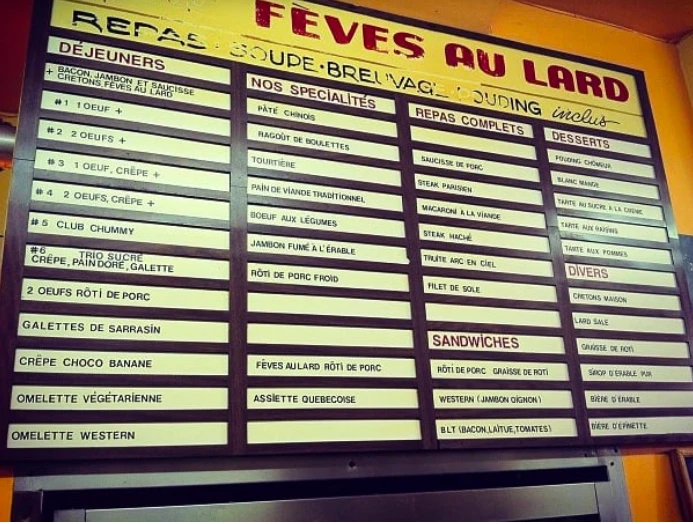 FÈVES AU LARD
REPAS SOUPE·BREUVAGE POUDING inclus
DÉJEUNERS
+ BACON, JAMBON ET SAUCISSE
CRETONS, FÈVES AU LARD
#1 1 OEUF +
#2 2 OEUFS +
#3 1 OEUF, CRÊPE +
#4 2 OEUFS, CRÊPE +
#5 CLUB CHUMMY
#6 TRIO SUCRÉ
CRÊPE, PAIN DORÉ, GALETTE
2 OEUFS RÔTI DE PORC
GALETTES DE SARRASIN
CRÊPE CHOCO BANANE
OMELETTE VÉGÉTARIENNE
OMELETTE WESTERN
NOS SPÉCIALITÉS
PÂTÉ CHINOIS
RAGOÛT DE BOULETTES
TOURTIÈRE
PAIN DE VIANDE TRADITIONNEL
BOEUF AUX LÉGUMES
JAMBON FUMÉ À L'ÉRABLE
RÔTI DE PORC FROID
FÈVES AU LARD RÔTI DE PORC
ASSIETTE QUEBECOISE
REPAS COMPLETS
SAUCISSE DE PORC
STEAK PARISIEN
MACARONI À LA VIANDE
STEAK HACHÉ
TRUITE ARC EN CIEL
FILET DE SOLE
SANDWICHES
RÔTI DE PORC GRAISSE DE ROTI
WESTERN (JAMBON OIGNON)
BLT (BACON, LAITUE, TOMATES)
DESSERTS
POUDING CHÔMEUR
BLANC MANGE
TARTE AU SUCRE À LA CRÈME
TARTE AUX RAISINS
TARTE AUX POMMES
DIVERS
CRETONS MAISON
LARD SALÉ
GRAISSE DE ROTI
SIROP D'ÉRABLE PUR
BIÈRE D'ÉRABLE
BIÈRE D'ÉPINETTE